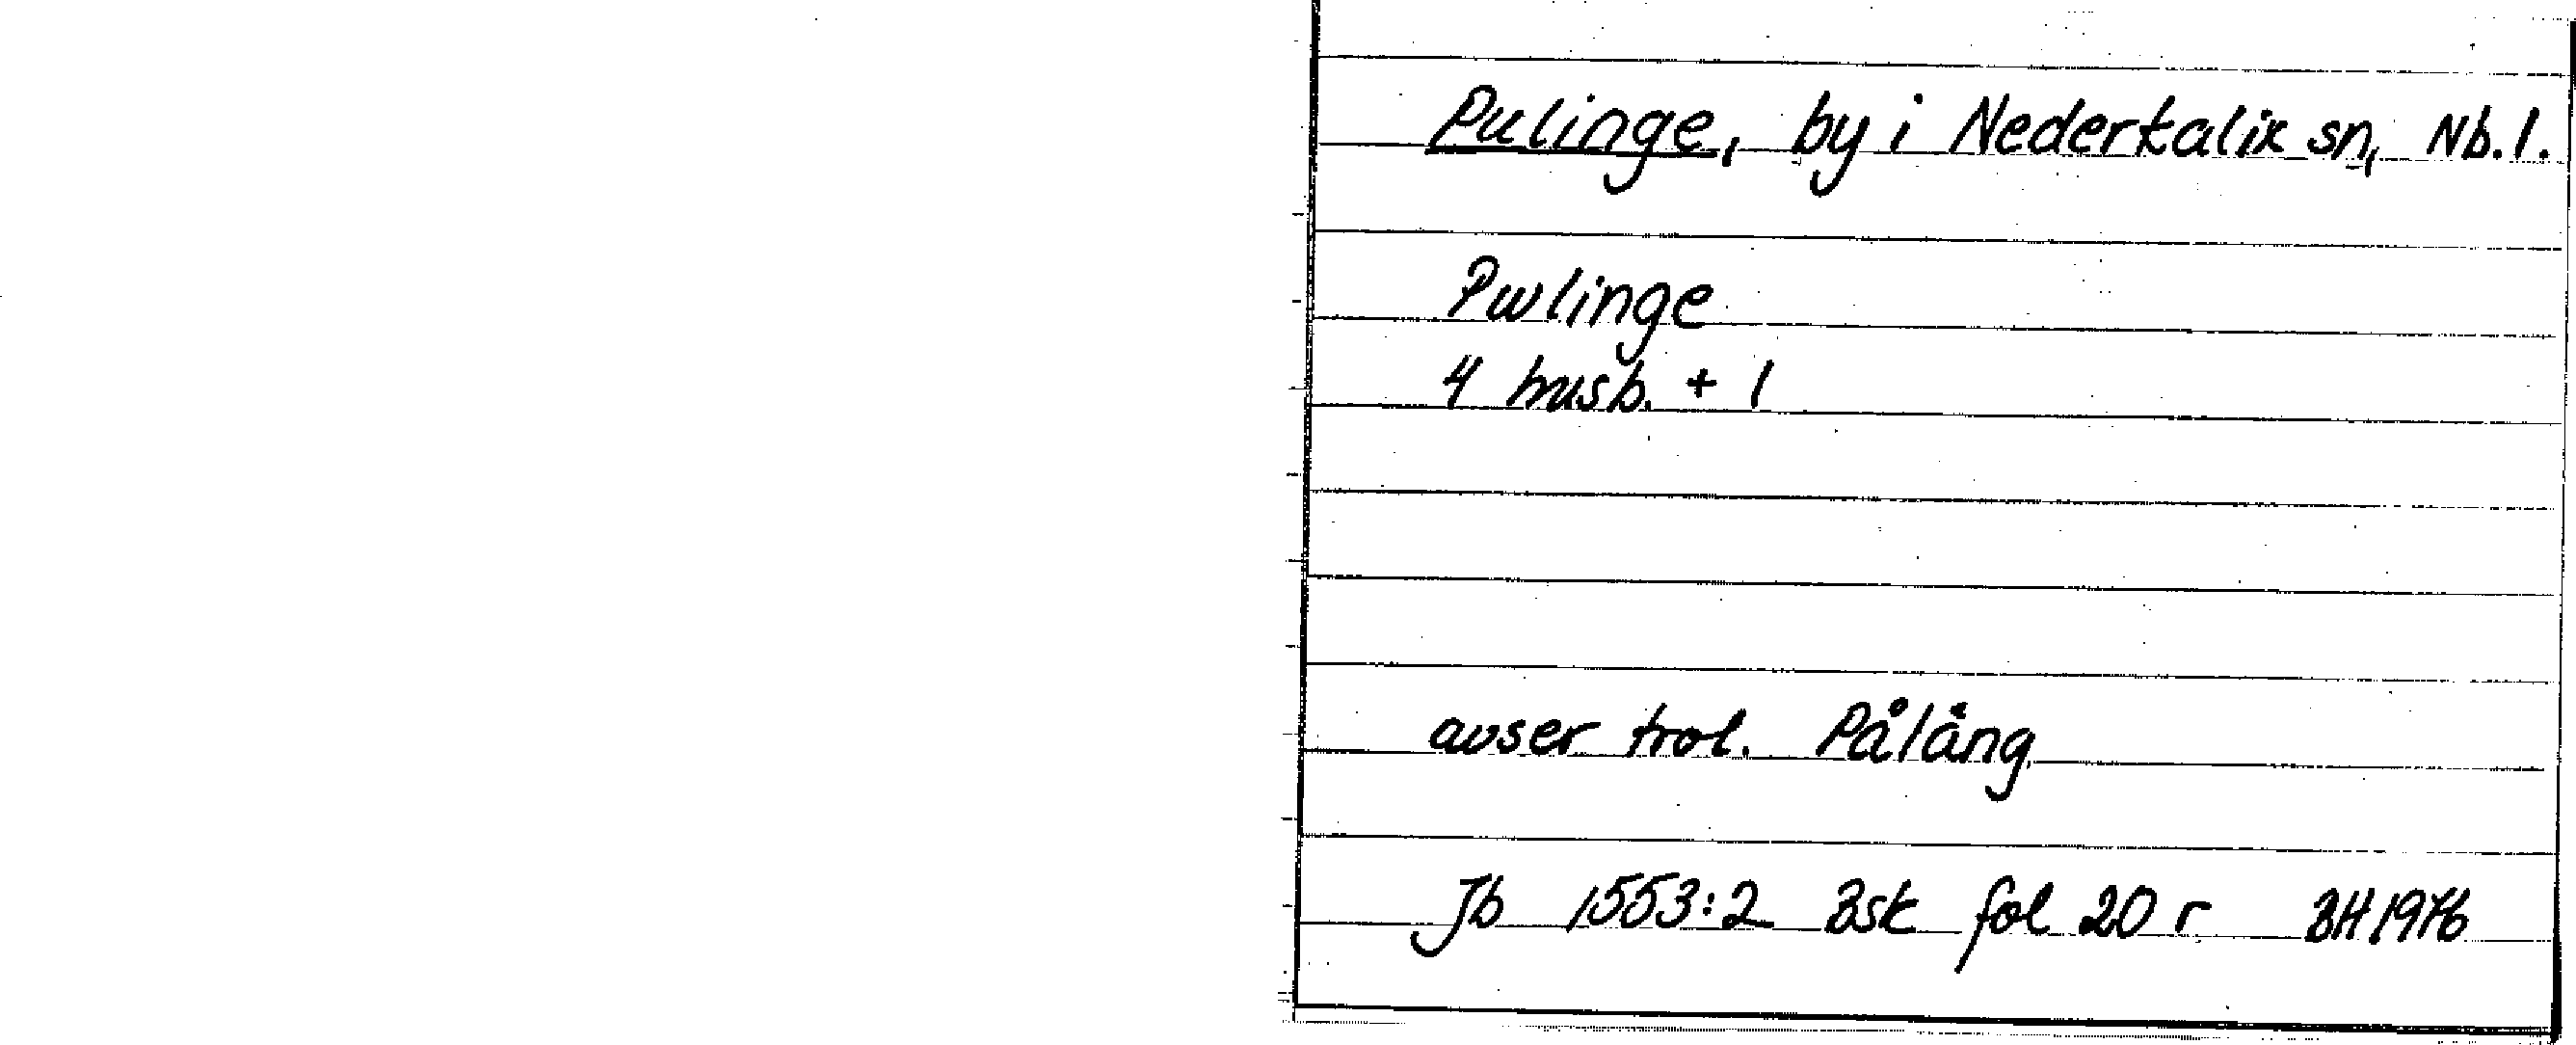 Pulinge, by i Nederkalix sn, Nb.l.
Pwlinge
4 husb. + 1
avser trol. Påläng
Jb 1553:2 Bsk fol 20 r BH 1976